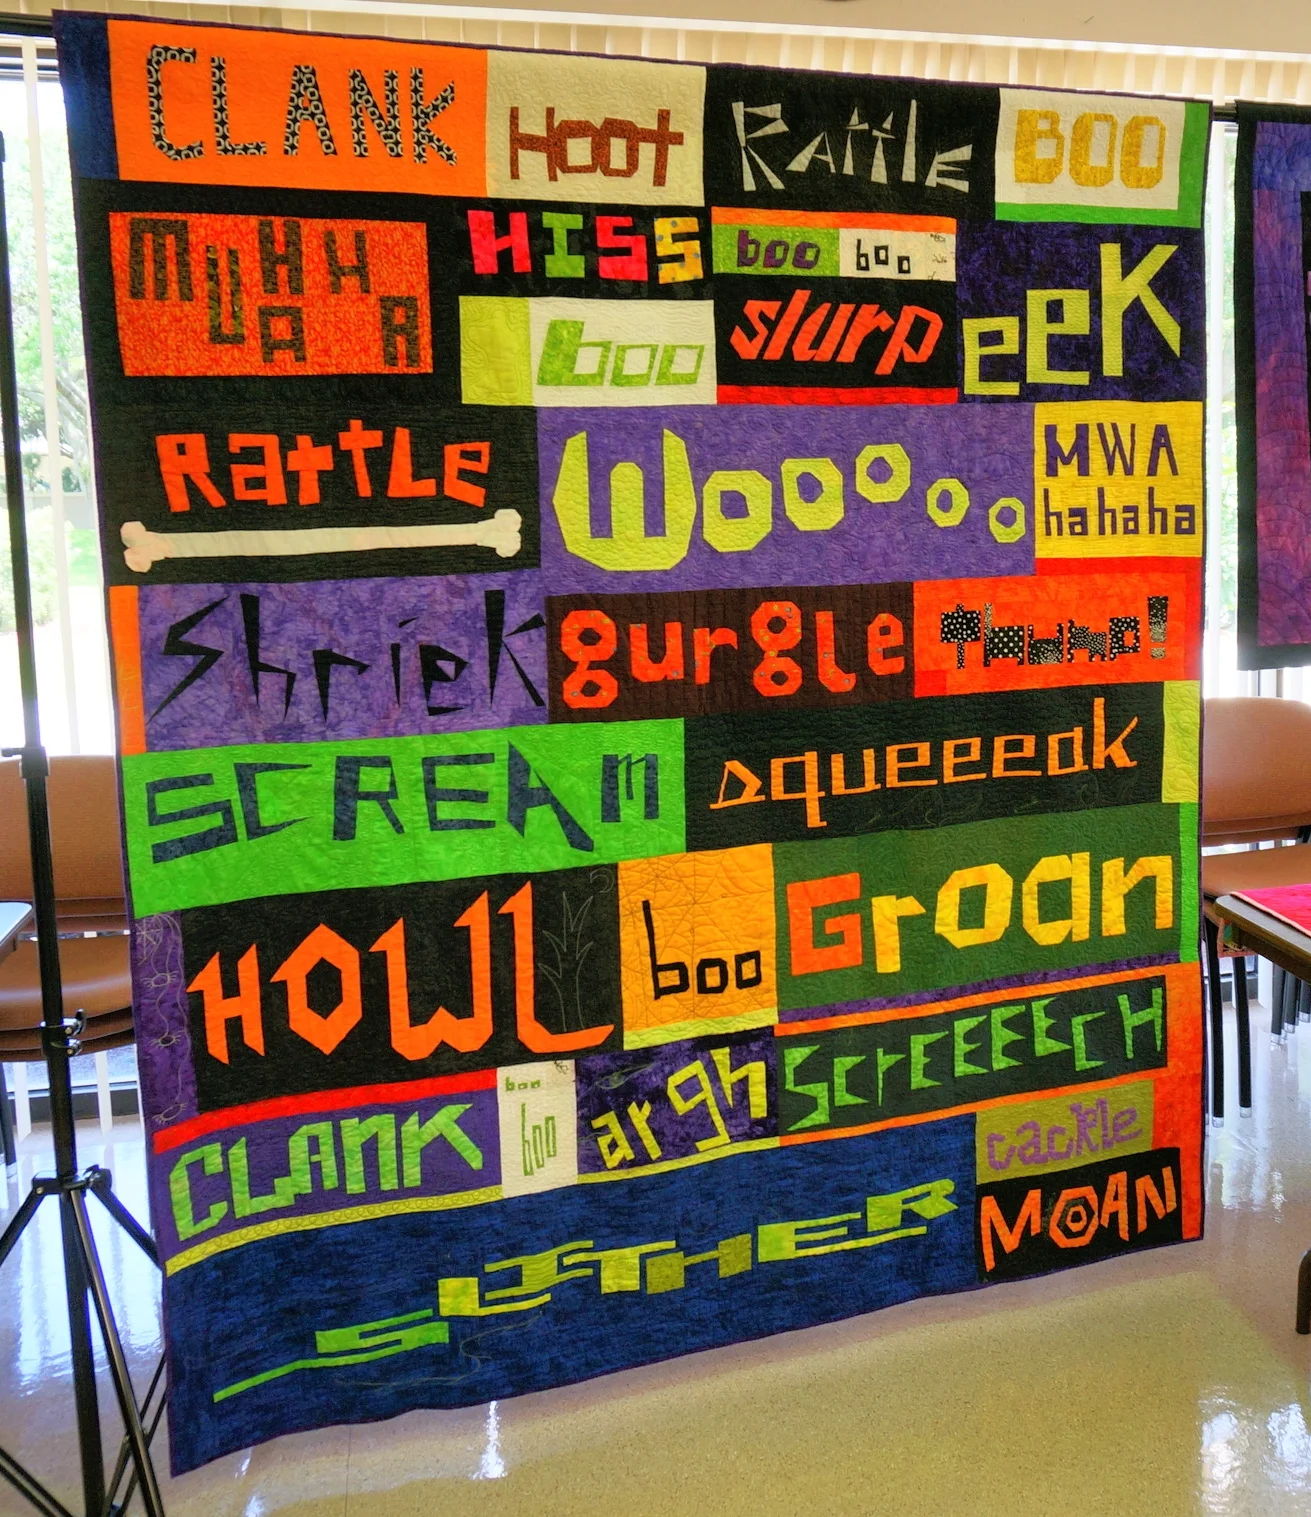 CLANK Hoot RattLE BOO
MUHAHA HISS boo boo
boo slurp eeK
RattLe Woooooo MWA
hahaha
ShrieK gurgle thump!
SCREAm squeeeak
HOWL boo Groan
CLANK boo boo argh ScrEEEECH
cacKle
SLITHER MOAN